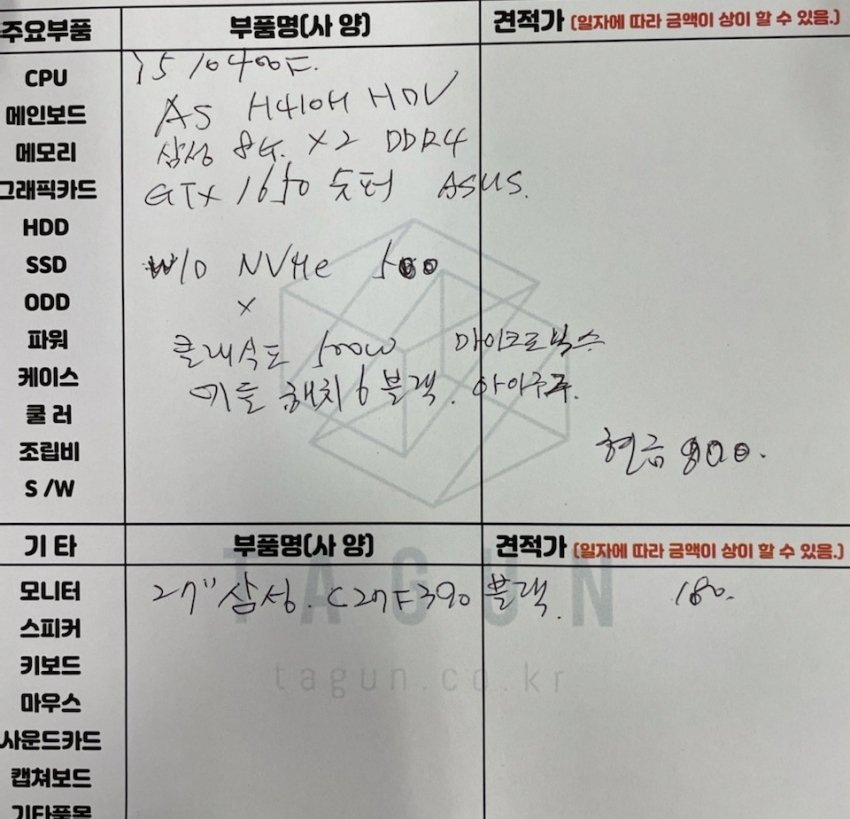 주요부품 부품명(사 양) 견적가 (일자에 따라 금액이 상이 할 수 있음.)
CPU i5 10400F.
메인보드 AS H410M HDV
메모리 삼성 8G. X2 DDR4
그래픽카드 GTX 1650 슷터 ASUS.
HDD
SSD W/D NVMe 500
ODD X
파워 클래식도 500W 마이크로닉스
케이스 해치6 블랙.
쿨 러
조립비 현금 800.
S/W
기 타 부품명(사 양) 견적가 (일자에 따라 금액이 상이 할 수 있음.)
모니터 27" 삼성. C27F390 블랙. 180.
스피커
TAGUN
키보드 tagun.co.kr
마우스
사운드카드
캡쳐보드
기타품목